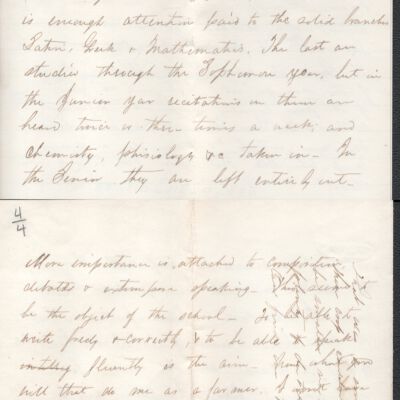 is enough attention paid to the solid branches
Latin, Greek & Mathematics. The last are
studied through the Sophomore year, but in
the Junior year recitations in them are
heard twice or three times a week, and
Chemistry, phisiology &c taken in — In
the Senior they are left entirely out —
4/4
More importance is attached to composition
debates & extempore speaking — This seems to
be the object of the school — To be able to
write freely & correctly, & to be able to speak
fluently is the aim —
will that do me as a farmer. I wont have